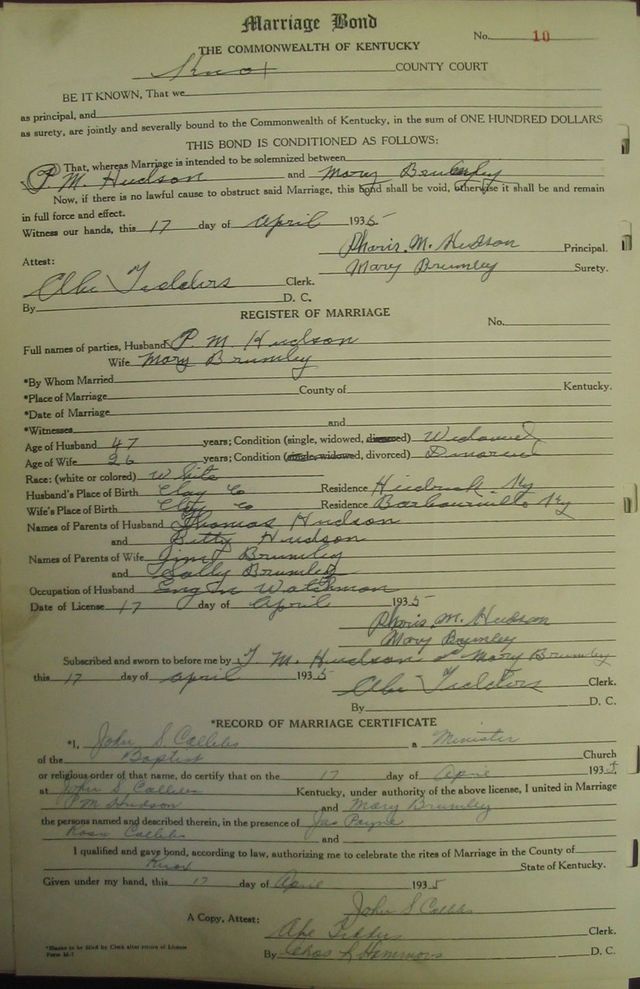 Marriage Bond
No. 10
THE COMMONWEALTH OF KENTUCKY
Knox COUNTY COURT
BE IT KNOWN, That we
as principal, and
as surety, are jointly and severally bound to the Commonwealth of Kentucky, in the sum of ONE HUNDRED DOLLARS
THIS BOND IS CONDITIONED AS FOLLOWS:
That, whereas Marriage is intended to be solemnized between
P. M. Hudson and Mary Brumley
Now, if there is no lawful cause to obstruct said Marriage, this bond shall be void, otherwise it shall be and remain
in full force and effect.
Witness our hands, this 17 day of April 1935
Pharis. M. Hudson Principal.
Attest: Mary Brumley Surety.
Clerk.
By D. C.
REGISTER OF MARRIAGE
No.
Full names of parties, Husband P. M. Hudson
Wife Mary Brumley
*By Whom Married
*Place of Marriage County of Kentucky.
*Date of Marriage
*Witnesses and
Age of Husband 47 years; Condition (single, widowed, divorced) Widowed
Age of Wife 26 years; Condition (single, widowed, divorced) Divorced
Race: (white or colored) White
Husband's Place of Birth Clay Co Residence Ky
Wife's Place of Birth Clay Co Residence Barbourville Ky
Names of Parents of Husband Thomas Hudson
and Betty Hudson
Names of Parents of Wife Jim Brumley
and Sally Brumley
Occupation of Husband Watchman
Date of License 17 day of April 1935
Pharis. M. Hudson
Mary Brumley
Subscribed and sworn to before me by P. M. Hudson & Mary Brumley
this 17 day of April 1935
Clerk.
By D. C.
*RECORD OF MARRIAGE CERTIFICATE
*I, John S Callebs a Minister
of the Baptist Church
or religious order of that name, do certify that on the 17 day of April 1935
at John S Callebs Kentucky, under authority of the above license, I united in Marriage
P M Hudson and Mary Brumley
the persons named and described therein, in the presence of Jas Payne
Rosa Callebs and
I qualified and gave bond, according to law, authorizing me to celebrate the rites of Marriage in the County of
Knox State of Kentucky.
Given under my hand, this 17 day of April 1935
John S Callebs
A Copy, Attest: Clerk.
By Chas R Hammons D. C.
*Blanks to be filled by Clerk after return of License
Form M-7